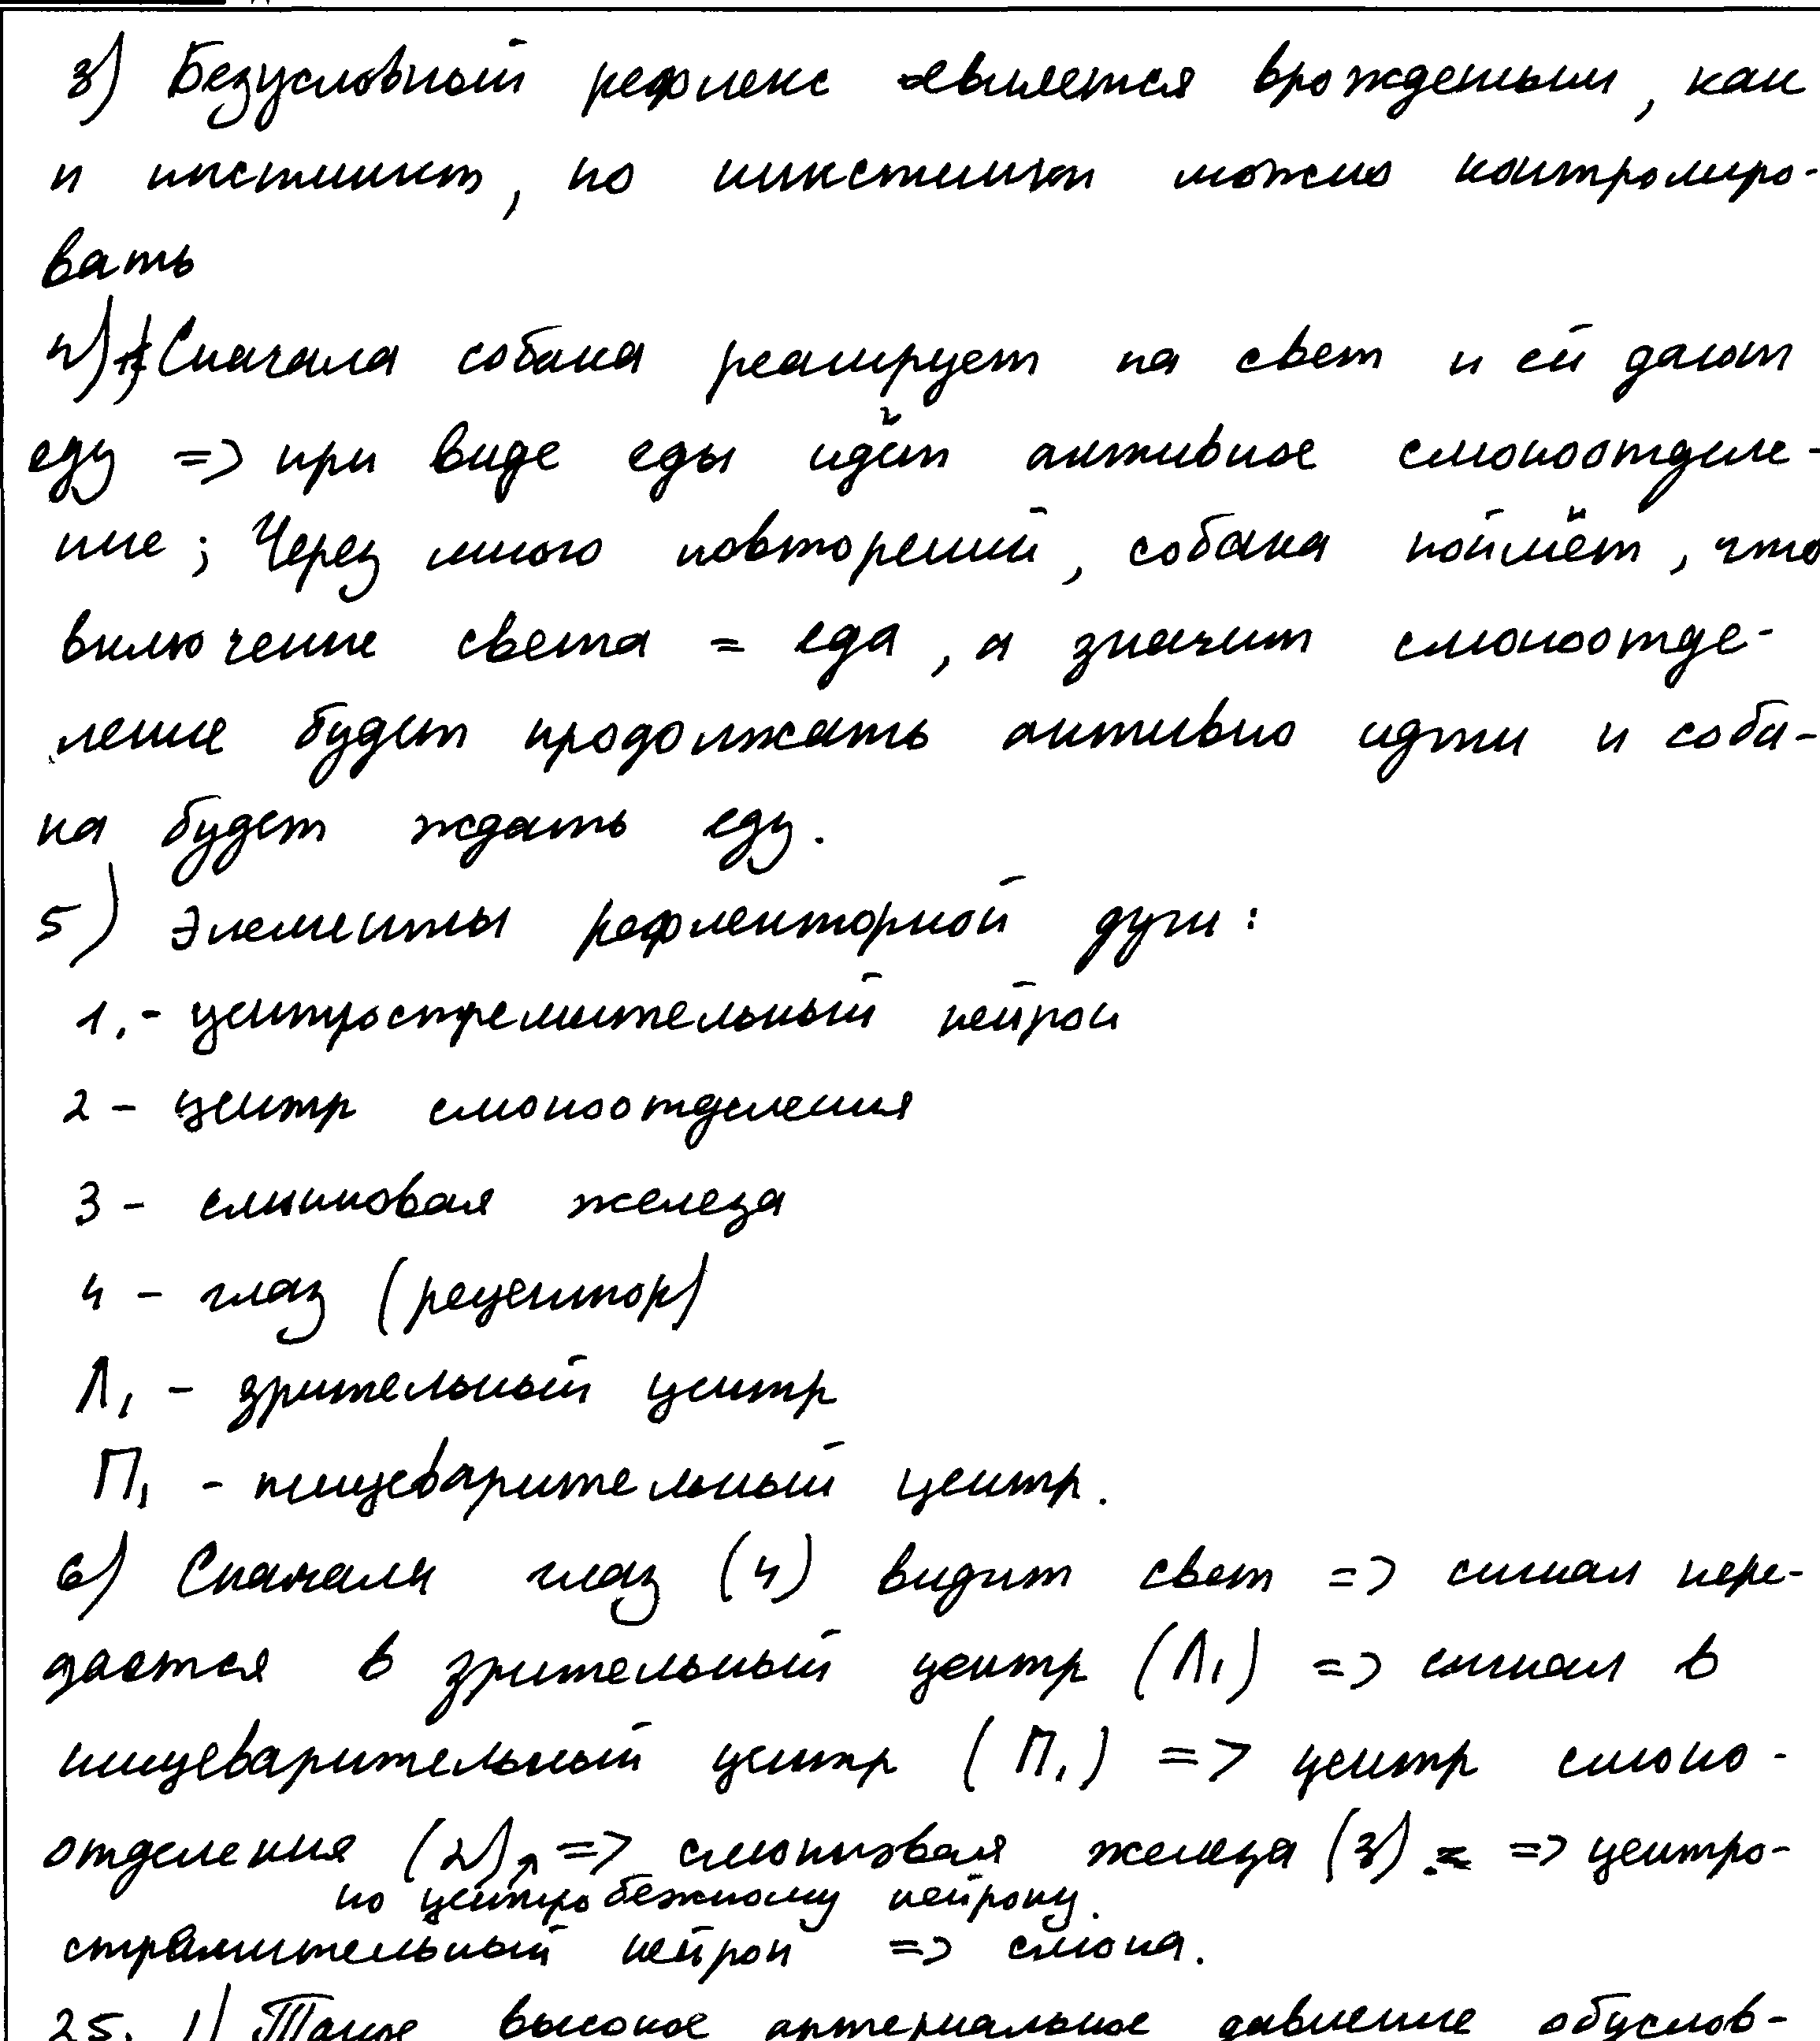 3) Безусловный рефлекс является врожденным, как
и инстинкт, но инкстинкт можно контролиро-
вать
4) Сначала собака реагирует на свет и ей дают
еду => при виде еды идёт активное слюноотделе-
ние; Через много повторений, собака поймёт, что
включение света = еда, а значит слюноотде-
ление будет продолжать активно идти и соба-
ка будет ждать еду.
5) Элементы рефлекторной дуги:
1. - центростремительный нейрон
2 - центр слюноотделения
3 - слюнновая железа
4 - глаз (рецептор)
Л₁ - зрительный центр
П₁ - пищеварительный центр.
6) Сначала глаз (4) видит свет => сигнал пере-
дается в зрительный центр (Л₁) => сигнал в
пищеварительный центр (П₁) => центр слюно-
отделения (2) => слюнновая железа (3) => центро-
по центробежному нейрону.
стремительный нейрон => слюна.
25. 1) Такое высокое артериальное давление обуслов-